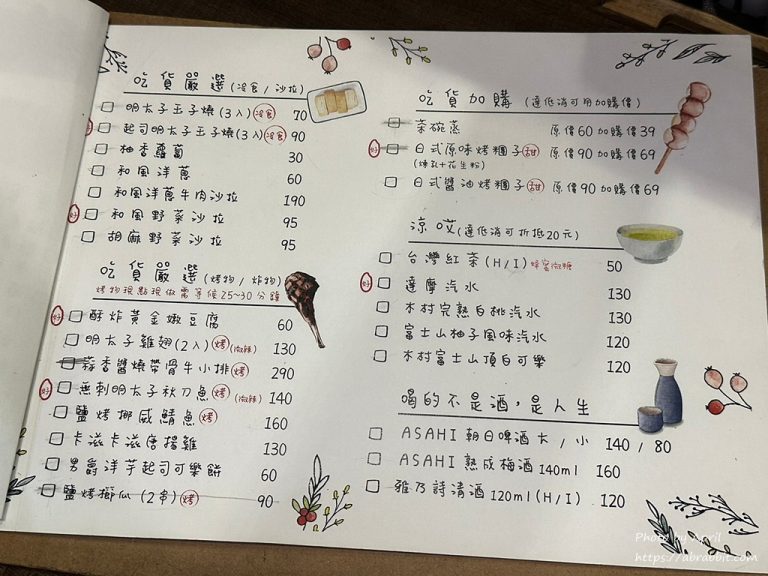 吃貨嚴選(冷食/沙拉)
明太子玉子燒(3入)(冷食) 70
好 起司明太子玉子燒(3入)(冷食) 90
柚香蘿蔔 30
和風洋蔥 60
和風洋蔥牛肉沙拉 190
好 和風野菜沙拉 95
胡麻野菜沙拉 95
吃貨嚴選(烤物/炸物)
烤物現點現做需等候25~30分鐘
好 酥炸黃金嫩豆腐 60
明太子雞翅(2入)(烤)(微辣) 130
蒜香醬燒帶骨牛小排(烤) 290
好 無刺明太子秋刀魚(烤)(微辣) 140
鹽烤挪威鯖魚(烤) 160
卡滋卡滋唐揚雞 130
男爵洋芋起司可樂餅 60
鹽烤櫛瓜(2串)(烤) 90
吃貨加購(達低消可用加購價)
茶碗蒸 原價60加購價39
好 日式原味烤糰子(甜) 原價90加購價69
(煉乳+花生粉)
日式醬油烤糰子(甜) 原價90加購價69
涼哎(達低消可折抵20元)
台灣紅茶(H/I)蜂蜜微糖 50
好 達摩汽水 130
木村完熟白桃汽水 130
富士山柚子風味汽水 120
木村富士山頂白可樂 120
喝的不是酒,是人生
ASAHI 朝日啤酒大/小 140/80
ASAHI 熟成梅酒140ml 160
雅乃詩清酒120ml(H/I) 120
Photo by April
https://abrabbit.com